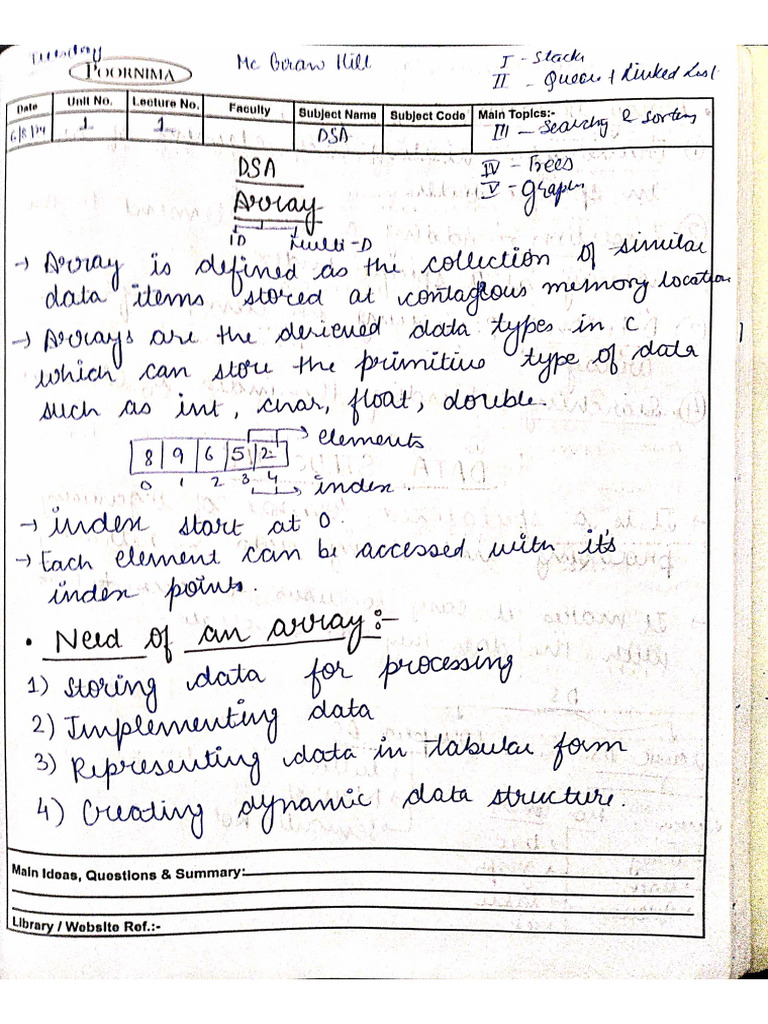 Tuesday
POORNIMA
Mc Graw Hill
I - Stack
II - Queue + Linked List
Date Unit No. Lecture No. Faculty Subject Name Subject Code Main Topics:-
6/8/24 1 1 DSA III - Searching & Sorting
IV - Trees
V - Graphs
DSA
Array
1D Multi-D
→ Array is defined as the collection of similar
data items stored at contagious memory location
→ Arrays are the derieved data types in C
which can store the primitive type of data
such as int, char, float, double.
→ elements
8 9 6 5 2
0 1 2 3 4
→ index.
→ index start at 0.
→ Each element can be accessed with it's
index points.
• Need of an array:-
1) Storing data for processing
2) Implementing data
3) Representing data in tabular form
4) Creating dynamic data structure.
Main Ideas, Questions & Summary:
Library / Website Ref.:-